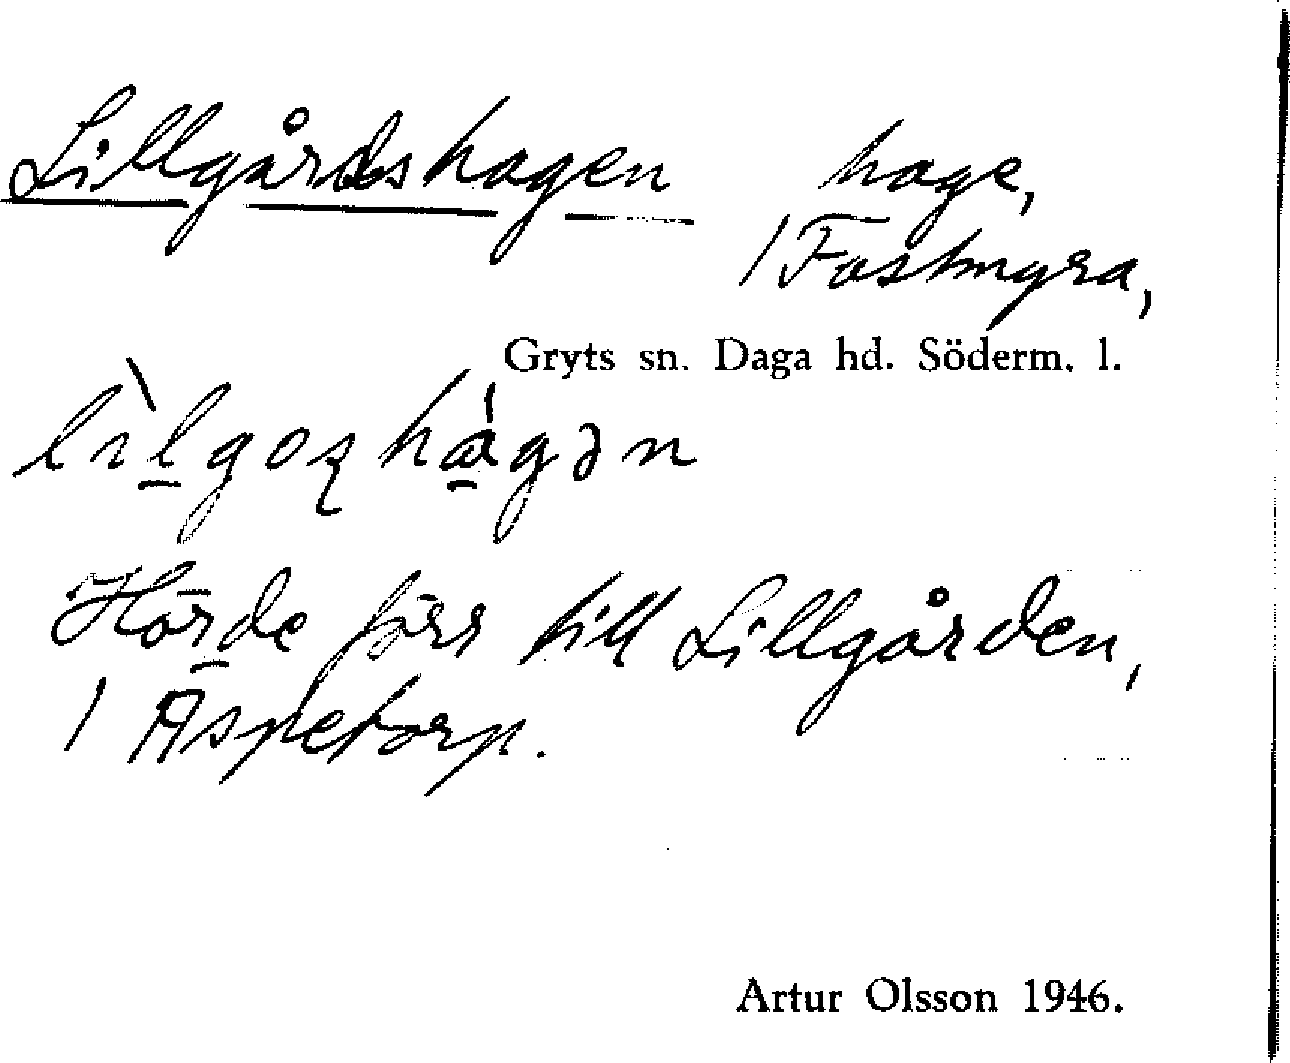 Lillgårdshagen hage,
/ Fastmyra,
Gryts sn. Daga hd. Söderm. l.
Hörde förr till Lillgården,
/ Aspetorp.
Artur Olsson 1946.